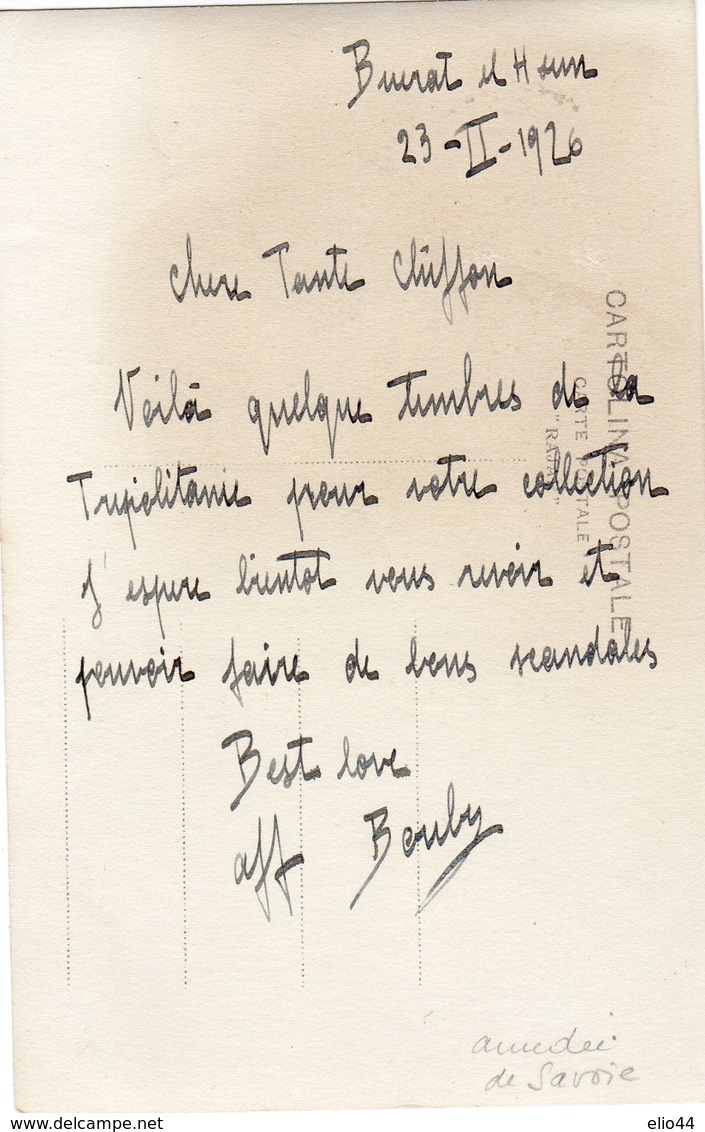 Buerat el Hsun
23-II-1926
Chere Tante Chiffon
Voilà quelque timbres de la
Tripolitanie pour votre collection
J'espere bientot vous revoir et
pouvoir faire de bons scandales
Best love
aff Bouby
CARTOLINA POSTALE
CARTE POSTALE
amedée
de Savoie
elio44